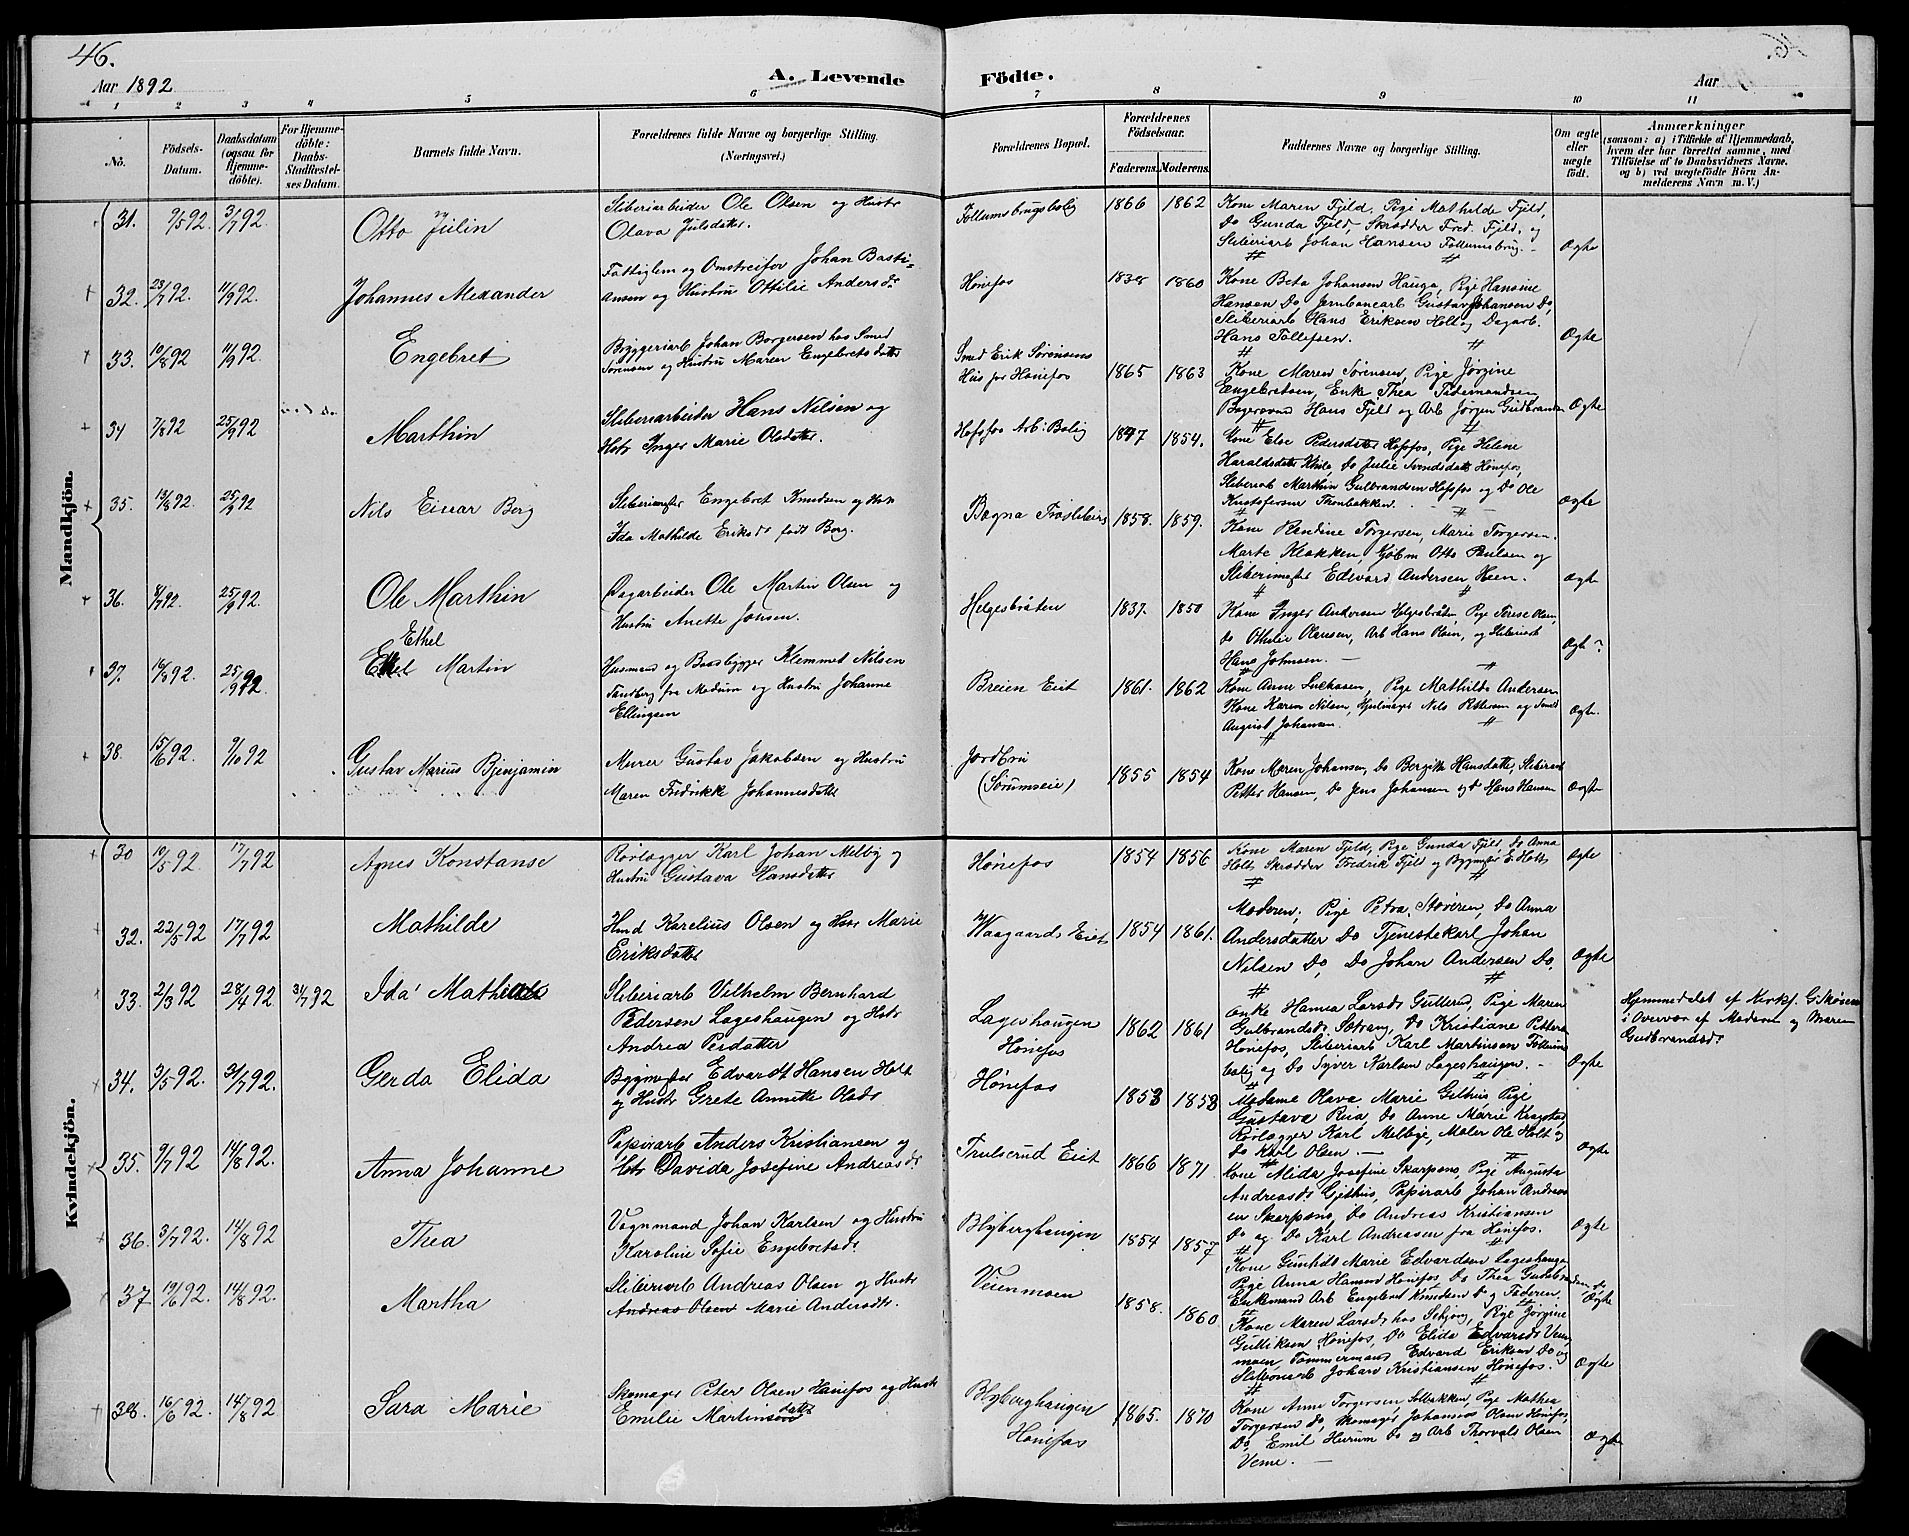 46.
Aar 1892
A. Levende
Födte.
Aar
1
2
3
4
5
6
7
8
9
10
11
No.
Födsels-Datum.
Daabsdatum (ogsaa for Hjemme-döbte).
For Hjemme-döbte: Daabs-Stadfestel-ses Datum.
Barnets fulde Navn.
Forældrenes fulde Navne og borgerlige Stilling.
(Næringsvei.)
Forældrenes Bopæl.
Forældrenes Födselsaar.
Faderens.
Moderens.
Faddernes Navne og borgerlige Stilling.
Om ægte eller uægte födt.
Anmærkninger
(saasom: a) i Tilfælde af Hjemmedaab, hvem der har forrettet samme, med Tilföielse af to Daabsvidners Navne, og b) ved uegtefödte Börn An-melderens Navn m. V.)
Mandkjön.
31. 9/5 92. 3/7 92. Otto Julin
Sliberiarbeider Ole Olsen og Hustr
Olava Julsdatter.
Follumsbrugsbolig 1866 1862
Kone Maren Fjeld, Pige Mathilde Fjeld,
Do Gunda Fjeld, Skrædder Fred. Fjeld, og
Sliberiarb Johan Hansen Follumsbrug. Ægte
32. 23/7 92. 11/9 92. Johannes Alexander
Fattiglem og Omstreifer Johan Basti-
ansen og Hustru Ottilie Andersdr
Hönefos 1838 1860
Kone Beta Johansen Hauga, Pige Hansine
Hansen Do, Jernbanearb Gustav Johansen Do,
Sliberiarb Hans Eriksen Holt og Dagarb.
Hans Tollefsen. Ægte
33. 10/8 92 11/9 92. Engebret
Bryggeriarb Johan Borgersen hos Smed
Sörensen og Hustru Maren Engebretsdatter
Smed Erik Sörensens
Hus pr Hönefos 1865 1863
Kone Maren Sörensen, Pige Jörgine
Engebretsen, Enke Thea Tidemandsen
Bagersvend Hans Fjeld og Arb Jörgen Gudbrandsen Ægte
34 7/8 92 25/9 92 Marthin
Sliberiarbeider Hans Nilsen og
Hstr Inger Marie Olsdatter.
Hofsfos Arb: Bolig 1847 1854.
Kone Else Pedersdatter Hofsfos, Pige Helene
Haraldsdatter, Do Julie Svendsdatter Hönefos,
Sliberiarb Marthin Gulbrandsen Hofsfos og Do Ole
Kristofersen Ægte
35. 13/8 92. 25/9 92 Nils Einar Berg
Sliberimester Engebret Knudsen og Hstr
Ida Mathilde Eriksdr födt Berg.
Bægna Træsliberi 1858. 1859.
Kone Randine Torgersen, Marie Torgersen,
Marte Klækken, Otto Paulsen og
Sliberimester Edvard Andersen Heen. Ægte
36. 4/7 92. 25/9 92. Ole Marthin
Dagarbeider Ole Martin Olsen og
Hustru Anette Jonsen.
Helgesbråten 1837. 1850
Kone Inger Andersen Helgesbråten, Pige Terese Olsen,
Do Othilie Olausen, Arb Hans Olsen, og Sliberiarb
Hans Johnsen. Ægte
37. 16/8 92. 25/9 92 Ethel
Ethel Martin
Husmand og Baadbygger Klemmet Nilsen
Sandberg fra Modum og Hustru Johanne
Ellingsen
Breien Eiet 1861. 1862
Kone Anne Lucassen, Pige Mathilde Andersen
Kone Karen Nilsen, Nils Pettersen og Smed
August Johansen. Ægte.
38. 15/6 92. 9/10 92 Gustav Marius Bjenjamin
Murer Gustav Jakobsen og Hustru
Maren Fredrikke Johannesdatter
Jordbru
(Sörumseie) 1855 1854
Kone Maren Johansen, Do Bergitte Hansdatter, Sliberiarb
Petter Hansen, Do Jens Johansen og Do Hans Hansen Ægte
Kvindekjön.
30 10/5 92. 17/7 92 Agnes Konstanse
Rörlægger Karl Johan Melby og
Hustru Gustava Hansdatter
Hönefos 1854 1856
Kone Maren Fjeld, Pige Gunda Fjeld, Do Anna
Holt, Skrædder Fredrik Fjeld og Bygmester E. Holt Ægte
32. 22/5 92 17/7 92 Mathilde
Hmd Karelius Olsen og Hstr Marie
Eriksdatter
Waagaards Eiet 1854 1861.
Moderen, Pige Petra Stöveren, Do Anna
Andersdatter Do Tjenestekarl Johan
Nilsen Do, Do Johan Andersen Do. Ægte
33. 2/3 92 28/4 92 31/7 92 Ida Mathilde
Sliberiarb Vilhelm Bernhard
Pedersen Lageshaugen og Hstr
Andrea Persdatter
Lageshaugen
Hönefos 1862 1861
Enke Hanna Larsdr Gullerud, Pige Maren
Gulbrandsdr Sætrang, Do Kristiane Pettersen
Hönefos, Sliberiarb Karl Martinsen Follums
bolig og Do Syver Karlsen Lageshaugen. Ægte
Hjemmedöbt af Kirks. G. Sköien
i Overvær af Moderen og Maren
Gudbrandsdr
34. 3/5 92. 31/7 92. Gerda Elida
Bygmester Edvardt Hansen Holt
og Hustr Grete Annette Olsdr
Hönefos 1853 1853
Madame Olava Marie Gethus, Pige
Gustava Rua, Do Anne Marie Kragstad,
Rörlægger Karl Melbye, Maler Ole Holt og
Do Karl Olsen Ægte
35. 9/7 92 14/8 92. Anna Johanne
Papirarb Anders Kristiansen og
Hstr Davida Josefine Andreasdr
Trulserud Eiet 1866 1871
Kone Alida Josefine Skarpsno, Pige Augusta
Andreasdr Gjethus, Papirarb Johan Andreas
en Skarpsno, Do Andreas Kristiansen
Do og Do Karl Andreasen fra Hönefos. Ægte
36. 3/7 92. 14/8 92 Thea
Vognmand Johan Karlsen og Hustru
Karoline Sofie Engebretsdr
Blybergshaugen 1854 1857
Kone Gunhild Marie Edvardsen Lageshaugen
Pige Anna Hansen Hönefos, Do Thea Gudsbrandsen Do,
Enkemand Arb Engebret Knudsen Do og Faderen. Ægte
37 19/6 92. 14/8 92. Martha
Sliberiarb Andreas Olsen og Hustr
Andreas Olsen Marie Andersdtr.
Veienmoen 1858. 1860
Kone Maren Larsdr hos Schjong, Pige Jörgine
Gulliksen Hönefos, Do Elida Edvardsdr Veien
moen, Tømmermand Edvard Eriksen Do og
Sliberiarb Johan Kristiansen Hönefos. Ægte
38. 16/6 92. 14/8 92 Sara Marie
Skomager Peter Olsen Hönefos og Hustr
Emilie Martinsdatter
Blybergshaugen
Hönefos 1865. 1870
Kone Anne Torgersen Solbakken, Pige Mathea
Torgersen Do, Skomager Johannes Olsen Hönefos,
Do Emil Hurum Do og Arb Thorvald Olsen
Veme. Ægte